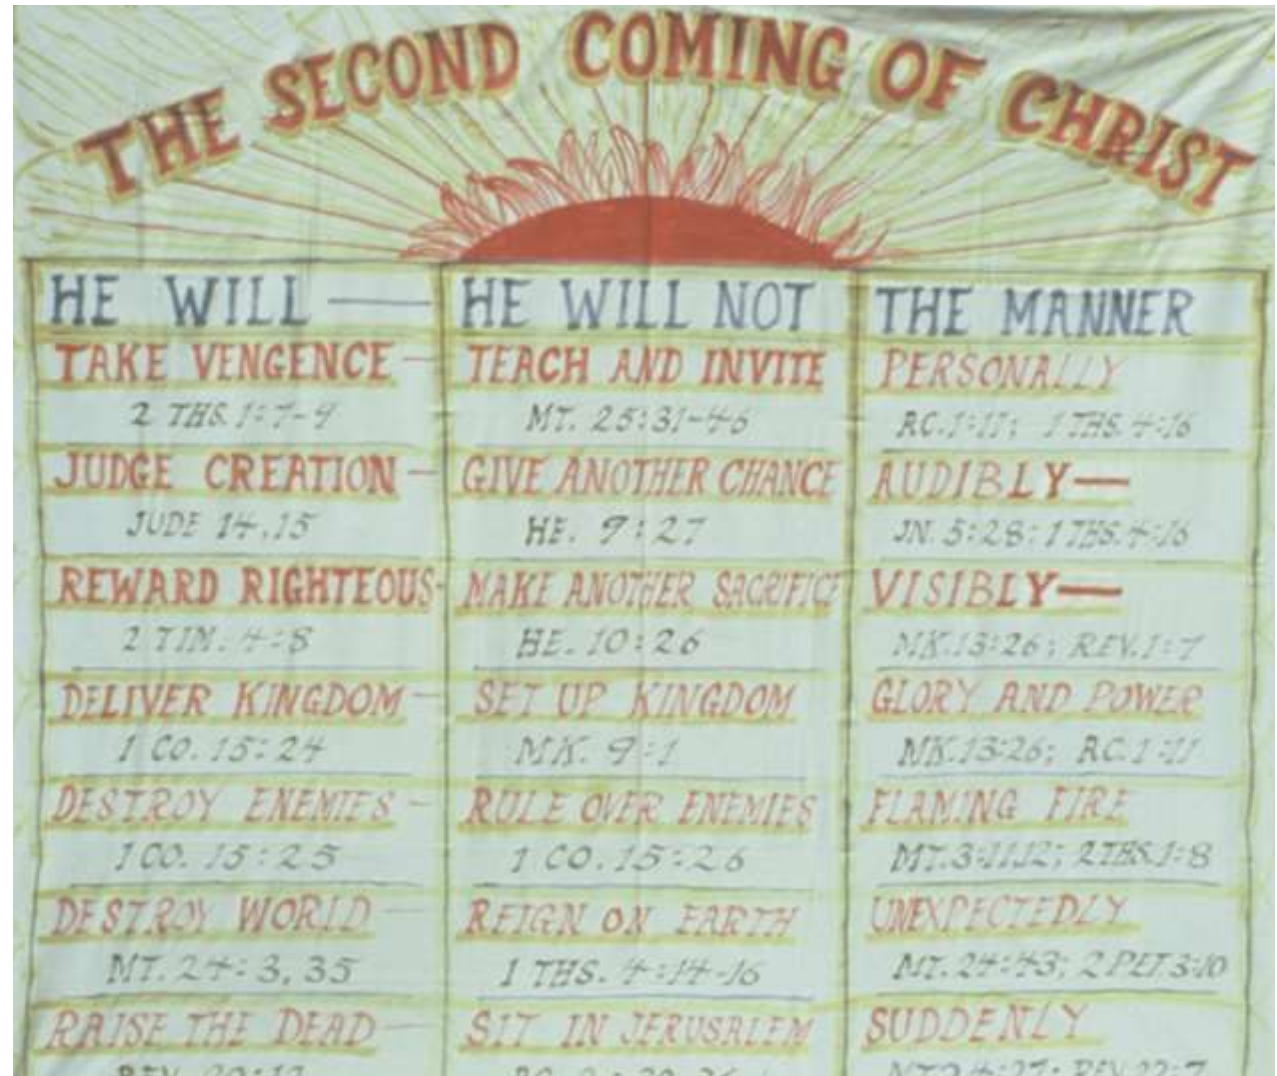 THE SECOND COMING OF CHRIST
HE WILL —
TAKE VENGENCE —
2 THS. 1:7-9
JUDGE CREATION —
JUDE 14,15
REWARD RIGHTEOUS-
2 TIM. 4:8
DELIVER KINGDOM —
1 CO. 15:24
DESTROY ENEMIES —
1 CO. 15:25
DESTROY WORLD —
MT. 24:3,35
RAISE THE DEAD —
HE WILL NOT
TEACH AND INVITE
MT. 25:31-46
GIVE ANOTHER CHANCE
HE. 9:27
MAKE ANOTHER SACRIFICE
HE. 10:26
SET UP KINGDOM
MK. 9:1
RULE OVER ENEMIES
1 CO. 15:26
REIGN ON EARTH
1 THS. 4:14-16
SIT IN JERUSALEM
THE MANNER
PERSONALLY
AC. 1:11; 1 THS. 4:16
AUDIBLY —
JN. 5:28; 1 THS. 4:16
VISIBLY —
MK. 13:26; REV. 1:7
GLORY AND POWER
MK. 13:26; AC. 1:11
FLAMING FIRE
MT. 3:11,12; 2 THS. 1:8
UNEXPECTEDLY
MT. 24:43; 2 PET 3:10
SUDDENLY